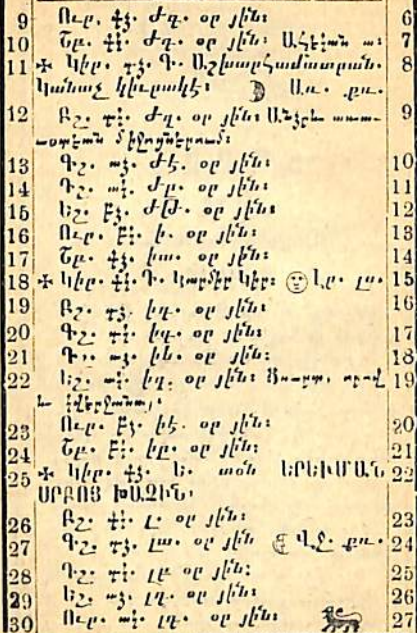 9 Ուր. գձ. ժգ. օր յին։ 6
10 Շբ. գկ. ժդ. օր յին։ Ահեկան ա։ 7
11 ✠ Կիր. դձ. Գ. Աշխարհամատրան. 8
Կանաչ կիւրակէ։ ☽ Առ. քռ.
12 Բշ. դկ. ժզ. օր յին։ Անձրև 9
միջոցներում։
13 Գշ. աձ. ժէ. օր յին։ 10
14 Դշ. ակ. ժը. օր յին։ 11
15 Եշ. բձ. ժթ. օր յին։ 12
16 Ուր. բկ. ի. օր յին։ 13
17 Շբ. գձ. իա. օր յին։ 14
18 ✠ Կիր. գկ. Դ. Կարմիր Կիր։ Լր. լս. 15
19 Բշ. դձ. իգ. օր յին։ 16
20 Գշ. դկ. իդ. օր յին։ 17
21 Դշ. աձ. իե. օր յին։ 18
22 Եշ. ակ. իզ. օր յին։ 19
23 Ուր. բձ. իէ. օր յին։ 20
24 Շբ. բկ. իը. օր յին։ 21
25 ✠ Կիր. գձ. Ե. տօն ԵՐԵՒՄԱՆ 22
ՍՐԲՈՅ ԽԱՉԻՆ.
26 Բշ. գկ. լ. օր յին։ 23
27 Գշ. դձ. լա. օր յին ☾ Վջ. քռ. 24
28 Դշ. դկ. լբ. օր յին։ 25
29 Եշ. աձ. լգ. օր յին։ 26
30 Ուր. ակ. լդ. օր յին։ 27